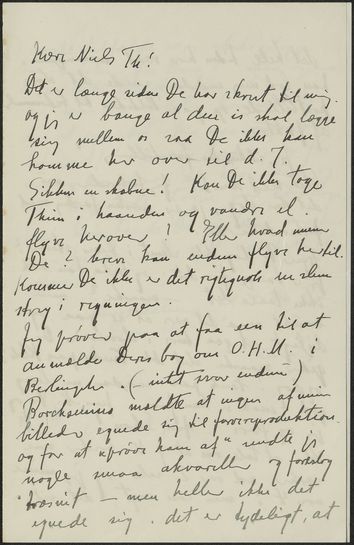 Kære Niels Th!
Det er længe siden De har skrevet til mig.
og jeg er bange at den is skal lægge
sig mellem os saa De ikke kan
komme her over til d. 7.
Sikken en skæbne! Kan De ikke tage
Thim i haanden og vandre el.
flyve herover? Eller hvad mener
De? breve kan endnu flyve hertil.
Kommer De ikke er det rigtignok en slem
streg i regningen.
Jeg prøver paa at faa een til at
anmelde Deres bog om O.H.M. i
Berlingske. (– intet svar endnu)
Borchsenius meldte at ingen af mine
billeder egnede sig til farvereproduktion.
og for at "prøve ham af" sendte jeg
nogle smaa akvareller og forslag
træsnit – men heller ikke det
egnede sig. det er tydeligt, at